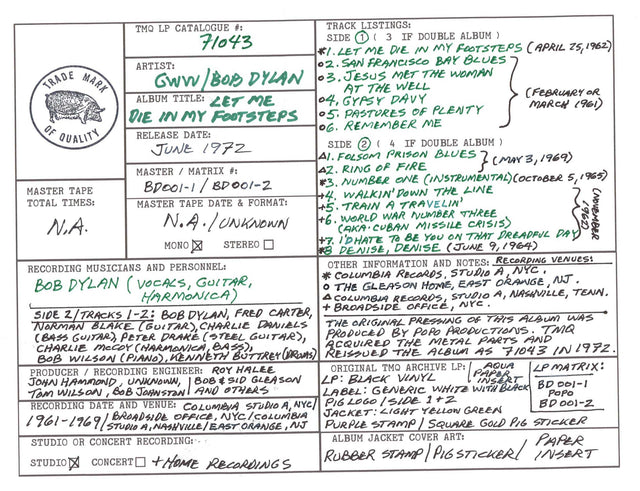 TMQ LP CATALOGUE #:
71043
TRADE MARK
OF QUALITY
ARTIST:
GWW/BOB DYLAN
ALBUM TITLE: LET ME
DIE IN MY FOOTSTEPS
RELEASE DATE:
JUNE 1972
MASTER / MATRIX #:
BD001-1 / BD001-2
MASTER TAPE
TOTAL TIMES:
N.A.
MASTER TAPE DATE & FORMAT:
N.A. / UNKNOWN
MONO ☒ STEREO ☐
TRACK LISTINGS:
SIDE ① ( 3 IF DOUBLE ALBUM )
*1. LET ME DIE IN MY FOOTSTEPS (APRIL 25, 1962)
o2. SAN FRANCISCO BAY BLUES
o3. JESUS MET THE WOMAN
AT THE WELL
o4. GYPSY DAVY
o5. PASTURES OF PLENTY
o6. REMEMBER ME
(FEBRUARY OR
MARCH 1961)
SIDE ② ( 4 IF DOUBLE ALBUM )
Δ1. FOLSOM PRISON BLUES
Δ2. RING OF FIRE
(MAY 3, 1969)
*3. NUMBER ONE (INSTRUMENTAL) (OCTOBER 5, 1965)
+4. WALKIN' DOWN THE LINE
+5. TRAIN A TRAVELIN'
+6. WORLD WAR NUMBER THREE
(AKA: CUBAN MISSILE CRISIS)
+7. I'D HATE TO BE YOU ON THAT DREADFUL DAY
(NOVEMBER
1962)
*8 DENISE, DENISE (JUNE 9, 1964)
RECORDING MUSICIANS AND PERSONNEL:
BOB DYLAN (VOCALS, GUITAR,
HARMONICA)
SIDE 2/TRACKS 1-2: BOB DYLAN, FRED CARTER,
NORMAN BLAKE (GUITAR), CHARLIE DANIELS
(BASS GUITAR), PETER DRAKE (STEEL GUITAR),
CHARLIE McCOY (HARMONICA, BASS),
BOB WILSON (PIANO), KENNETH BUTTREY (DRUMS)
OTHER INFORMATION AND NOTES: RECORDING VENUES:
* COLUMBIA RECORDS, STUDIO A, NYC.
o THE GLEASON HOME, EAST ORANGE, NJ.
Δ COLUMBIA RECORDS, STUDIO A, NASHVILLE, TENN.
+ BROADSIDE OFFICE, NYC.
THE ORIGINAL PRESSING OF THIS ALBUM WAS
PRODUCED BY POPO PRODUCTIONS. TMQ
ACQUIRED THE METAL PARTS AND
REISSUED THE ALBUM AS 71043 IN 1972.
PRODUCER / RECORDING ENGINEER: ROY HALEE
JOHN HAMMOND, UNKNOWN, BOB & SID GLEASON
TOM WILSON, BOB JOHNSTON AND OTHERS
RECORDING DATE AND VENUE: COLUMBIA STUDIO A, NYC/
1961-1969/BROADSIDE OFFICE, NYC/COLUMBIA
STUDIO A, NASHVILLE/EAST ORANGE, NJ
STUDIO OR CONCERT RECORDING:
STUDIO ☒ CONCERT ☐ + HOME RECORDINGS
ORIGINAL TMQ ARCHIVE LP: AQUA
PAPER
INSERT
LP: BLACK VINYL
LABEL: GENERIC WHITE WITH BLACK
PIG LOGO / SIDE 1 + 2
JACKET: LIGHT YELLOW GREEN
PURPLE STAMP / SQUARE GOLD PIG STICKER
LP MATRIX:
BD 001-1
POPO
BD 001-2
ALBUM JACKET COVER ART:
RUBBER STAMP / PIG STICKER / PAPER
INSERT